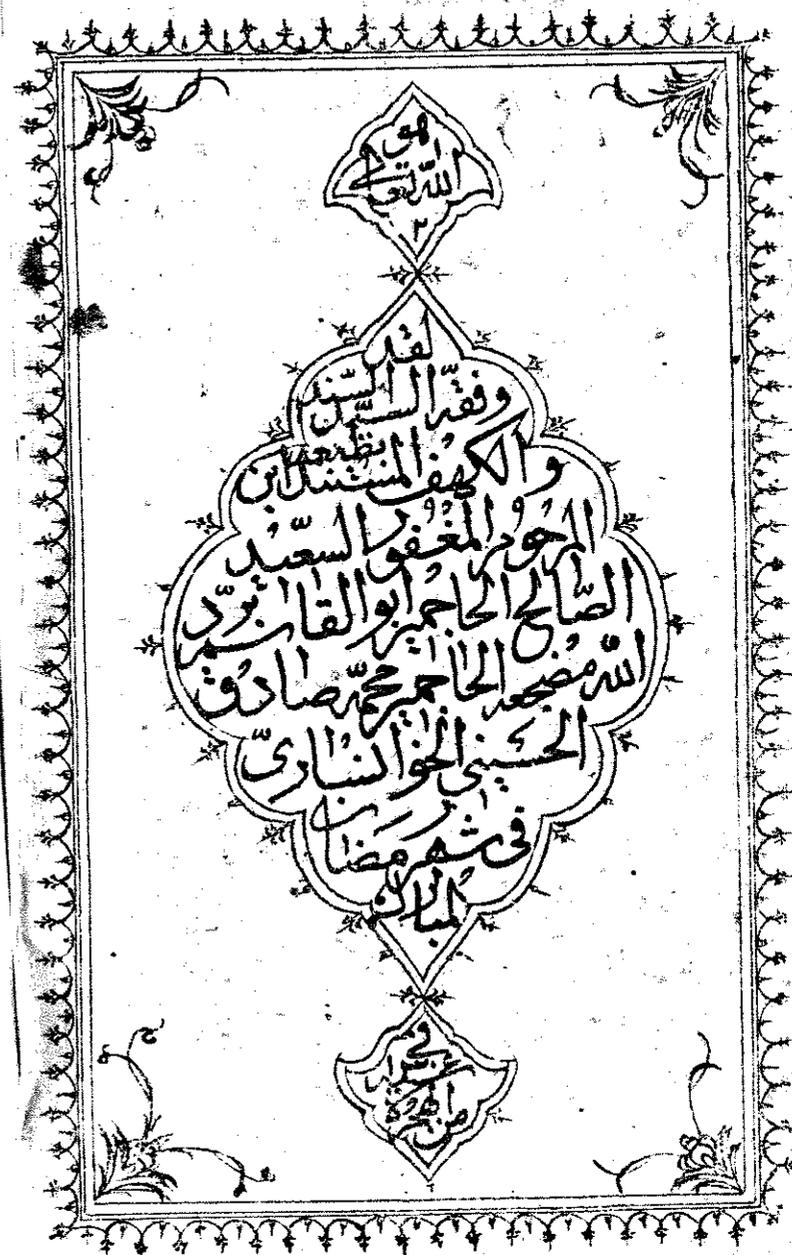 هو
الله تعالى
٢
لقد
وفقه السيد السند
و الكهف المستند ابن
المرحوم المغفور السعيد
الصالح الحاجمير ابو القاسم برّد
الله مضجعه الحاجمير محمّد صادق
الحسيني الخوانساري
في شهر رمضان
المبارك
في
من الهجرة